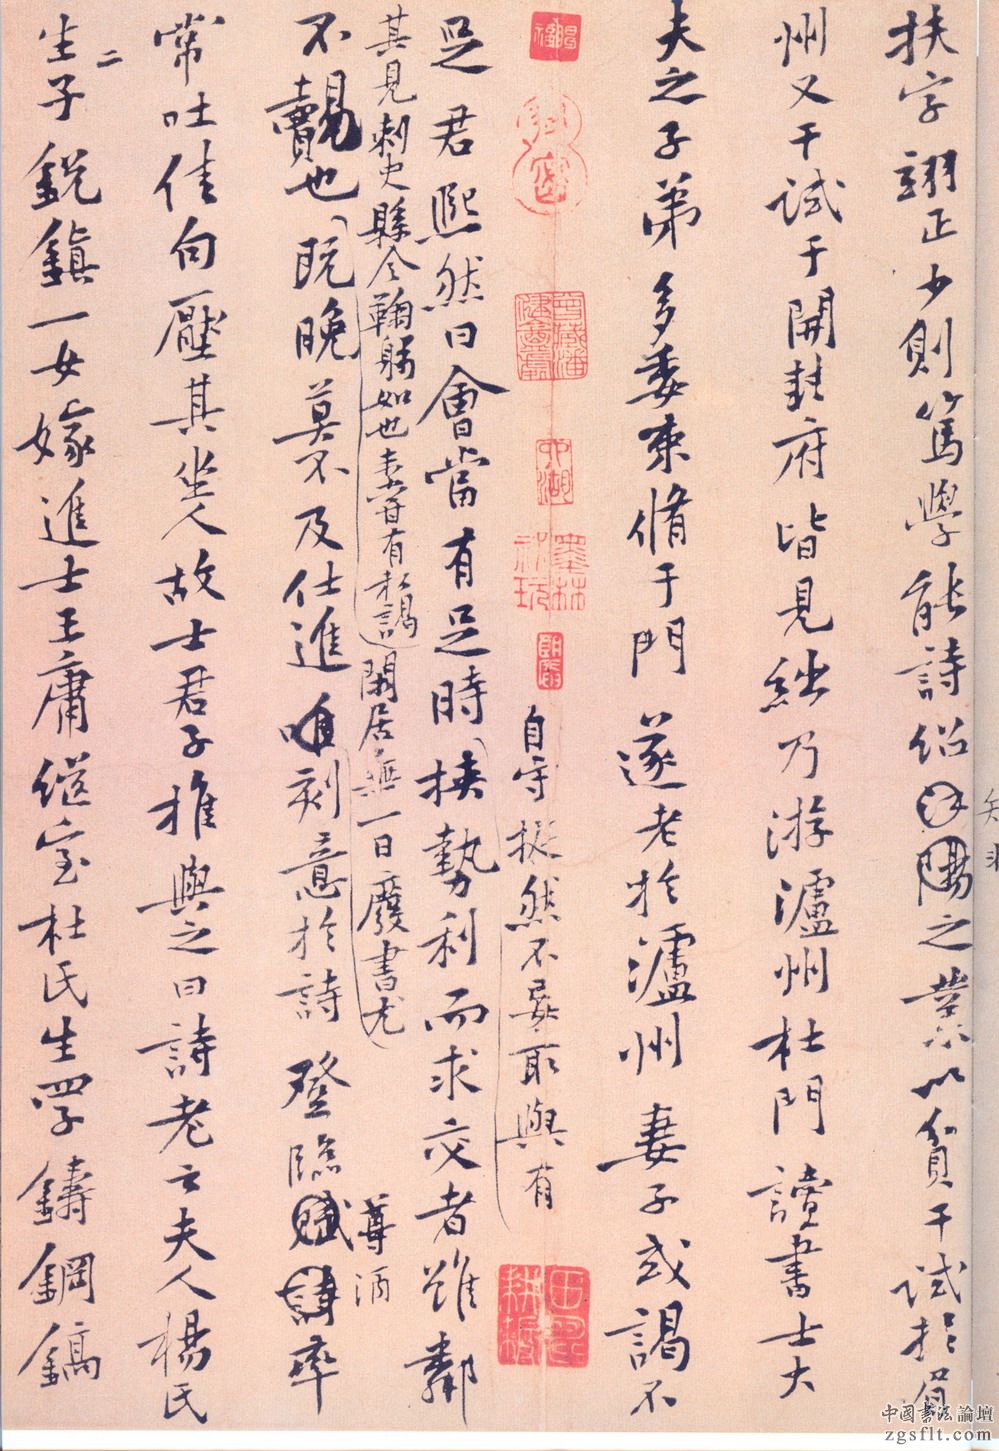 扶字翊正少則篤學能詩紹之業以貧干試於眉
知非
州又干試于開封府皆見絀乃游瀘州杜門讀書士大
夫之子弟多委束脩于門遂老於瀘州妻子或謁不
自守挺然不妄取與有
墨林秘玩
足君熙然曰會當有足時挾勢利而求交者雖鄰
其見刺史縣令鞠躬如也 有私謁閑居無一日廢書尤
不覿也既晚莫不及仕進唯刻意於詩登臨賦詩率
尊酒
常吐佳句壓其坐人故士君子推與之曰詩老云夫人楊氏
生二子銳鎮一女嫁進士王庸繼室杜氏生四子鑄鋼鎬
中國書法論壇
zgsflt.com